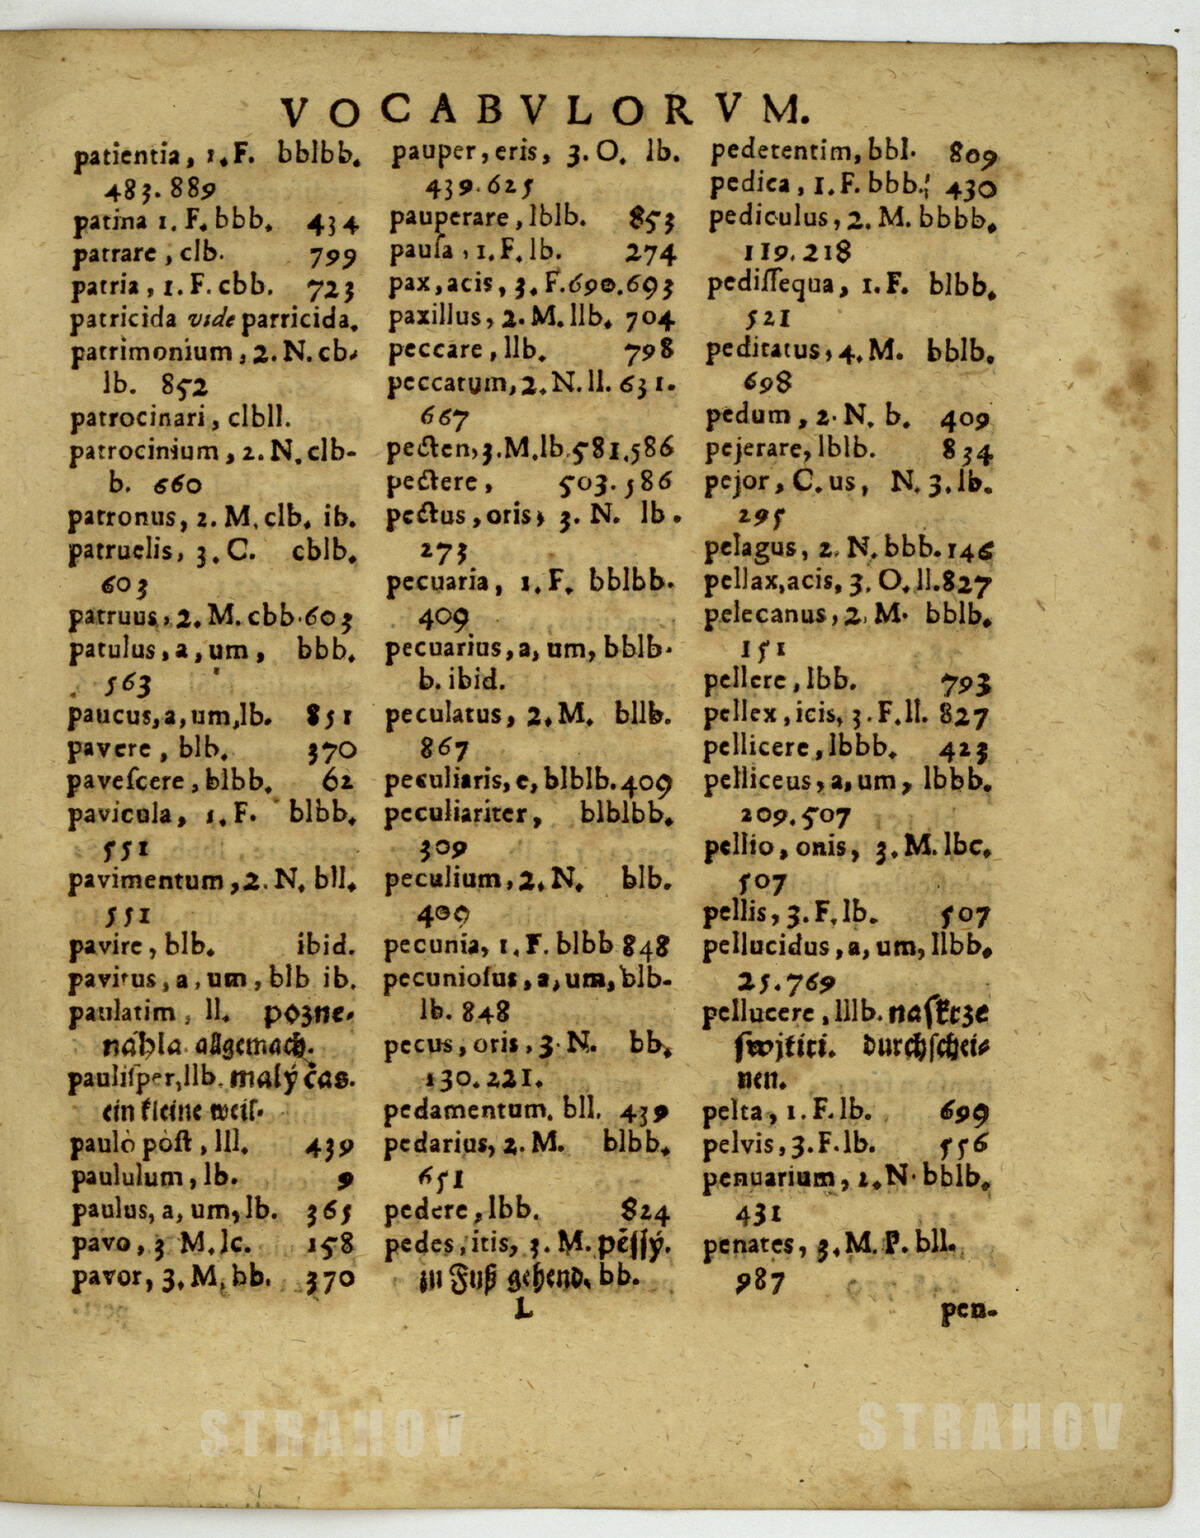 VOCABVLORVM.
patientia, 1. F. bblbb.
483. 889
patina 1. F. bbb. 434
patrare, clb. 799
patria, 1. F. cbb. 723
patricida vide parricida.
patrimonium, 2. N. cb-
lb. 852
patrocinari, clbll.
patrocinium, 2. N. clb-
b. 660
patronus, 2. M. clb. ib.
patruelis, 3. C. cblb.
603
patruus, 2. M. cbb. 603
patulus, a, um, bbb.
563
paucus, a, um, lb. 851
pavere, blb. 370
paveſcere, blbb. 62
pavicula, 1. F. blbb.
551
pavimentum, 2. N. bll.
551
pavire, blb. ibid.
pavitus, a, um, blb ib.
paulatim, ll. pozne-
náhla allgemach.
pauliſper, llb. malý čas.
ein kleine weil.
paulò pòſt, lll. 439
paululum, lb. 9
paulus, a, um, lb. 365
pavo, 3 M. lc. 158
pavor, 3. M. bb. 370
pauper, eris, 3. O. lb.
439. 625
pauperare, lblb. 853
pauſa, 1. F. lb. 274
pax, acis, 3. F. 690. 693
paxillus, 2. M. llb. 704
peccare, llb. 798
peccatum, 2. N. ll. 631.
667
pecten, 3. M. lb. 581. 586
pectere, 503. 586
pectus, oris, 3. N. lb.
273
pecuaria, 1. F. bblbb.
409
pecuarius, a, um, bblb-
b. ibid.
peculatus, 2. M. bllb.
867
peculiaris, e, blblb. 409
peculiariter, blblbb.
309
peculium, 2. N. blb.
409
pecunia, 1. F. blbb 848
pecunioſus, a, um, blb-
lb. 848
pecus, oris, 3. N. bb.
130. 221.
pedamentum. bll. 439
pedarius, 2. M. blbb.
651
pedere, lbb. 824
pedes, itis, 3. M. pěſſý.
zu Fuß gehend. bb.
L
pedetentim, bbl. 809
pedica, 1. F. bbb. 430
pediculus, 2. M. bbbb.
119. 218
pediſſequa, 1. F. blbb.
521
peditatus, 4. M. bblb.
698
pedum, 2. N. b. 409
pejerare, lblb. 834
pejor, C. us, N. 3. lb.
295
pelagus, 2. N. bbb. 146
pellax, acis, 3. O. ll. 827
pelecanus, 2. M. bblb.
151
pellere, lbb. 793
pellex, icis, 3. F. ll. 827
pellicere, lbbb. 423
pelliceus, a, um, lbbb.
209. 507
pellio, onis, 3. M. lbc.
507
pellis, 3. F. lb. 507
pellucidus, a, um, llbb.
25. 769
pellucere, lllb. naſkrze
ſwjtiti. durchſchei-
nen.
pelta, 1. F. lb. 699
pelvis, 3. F. lb. 556
penuarium, 2. N. bblb.
431
penates, 3. M. P. bll.
987
pen-
STRAHOV
STRAHOV